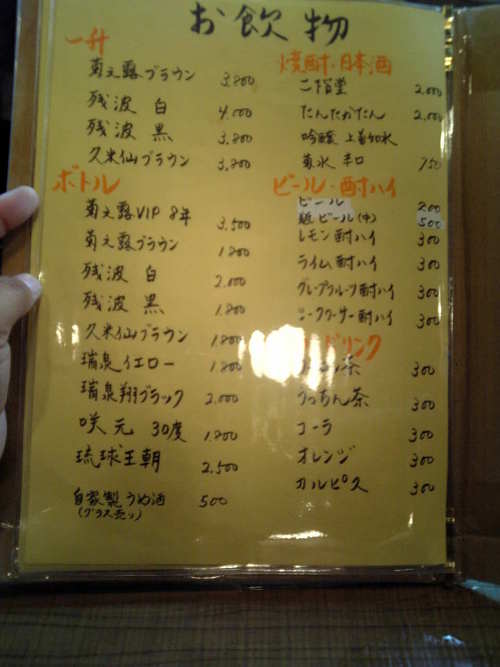 お飲物
一升
菊之露ブラウン 3,800
残波 白 4,000
残波 黒 3,800
久米仙ブラウン 3,800
ボトル
菊之露VIP 8年 3,500
菊之露ブラウン 1,800
残波 白 2,000
残波 黒 1,800
久米仙ブラウン 1,800
瑞泉イエロー 1,800
瑞泉翔ブラック 2,000
咲元 30度 1,800
琉球王朝 2,500
自家製うめ酒 500
(グラス売り)
焼酎・日本酒
二階堂 2,000
たんたかたん 2,000
吟醸 上善如水
菊水 辛口 750
ビール・酎ハイ
ビール 200
瓶ビール(中) 500
レモン酎ハイ 300
ライム酎ハイ 300
グレープフルーツ酎ハイ 300
シークワーサー酎ハイ 300
ドリンク
茶 300
うっちん茶 300
コーラ 300
オレンジ 300
カルピス 300